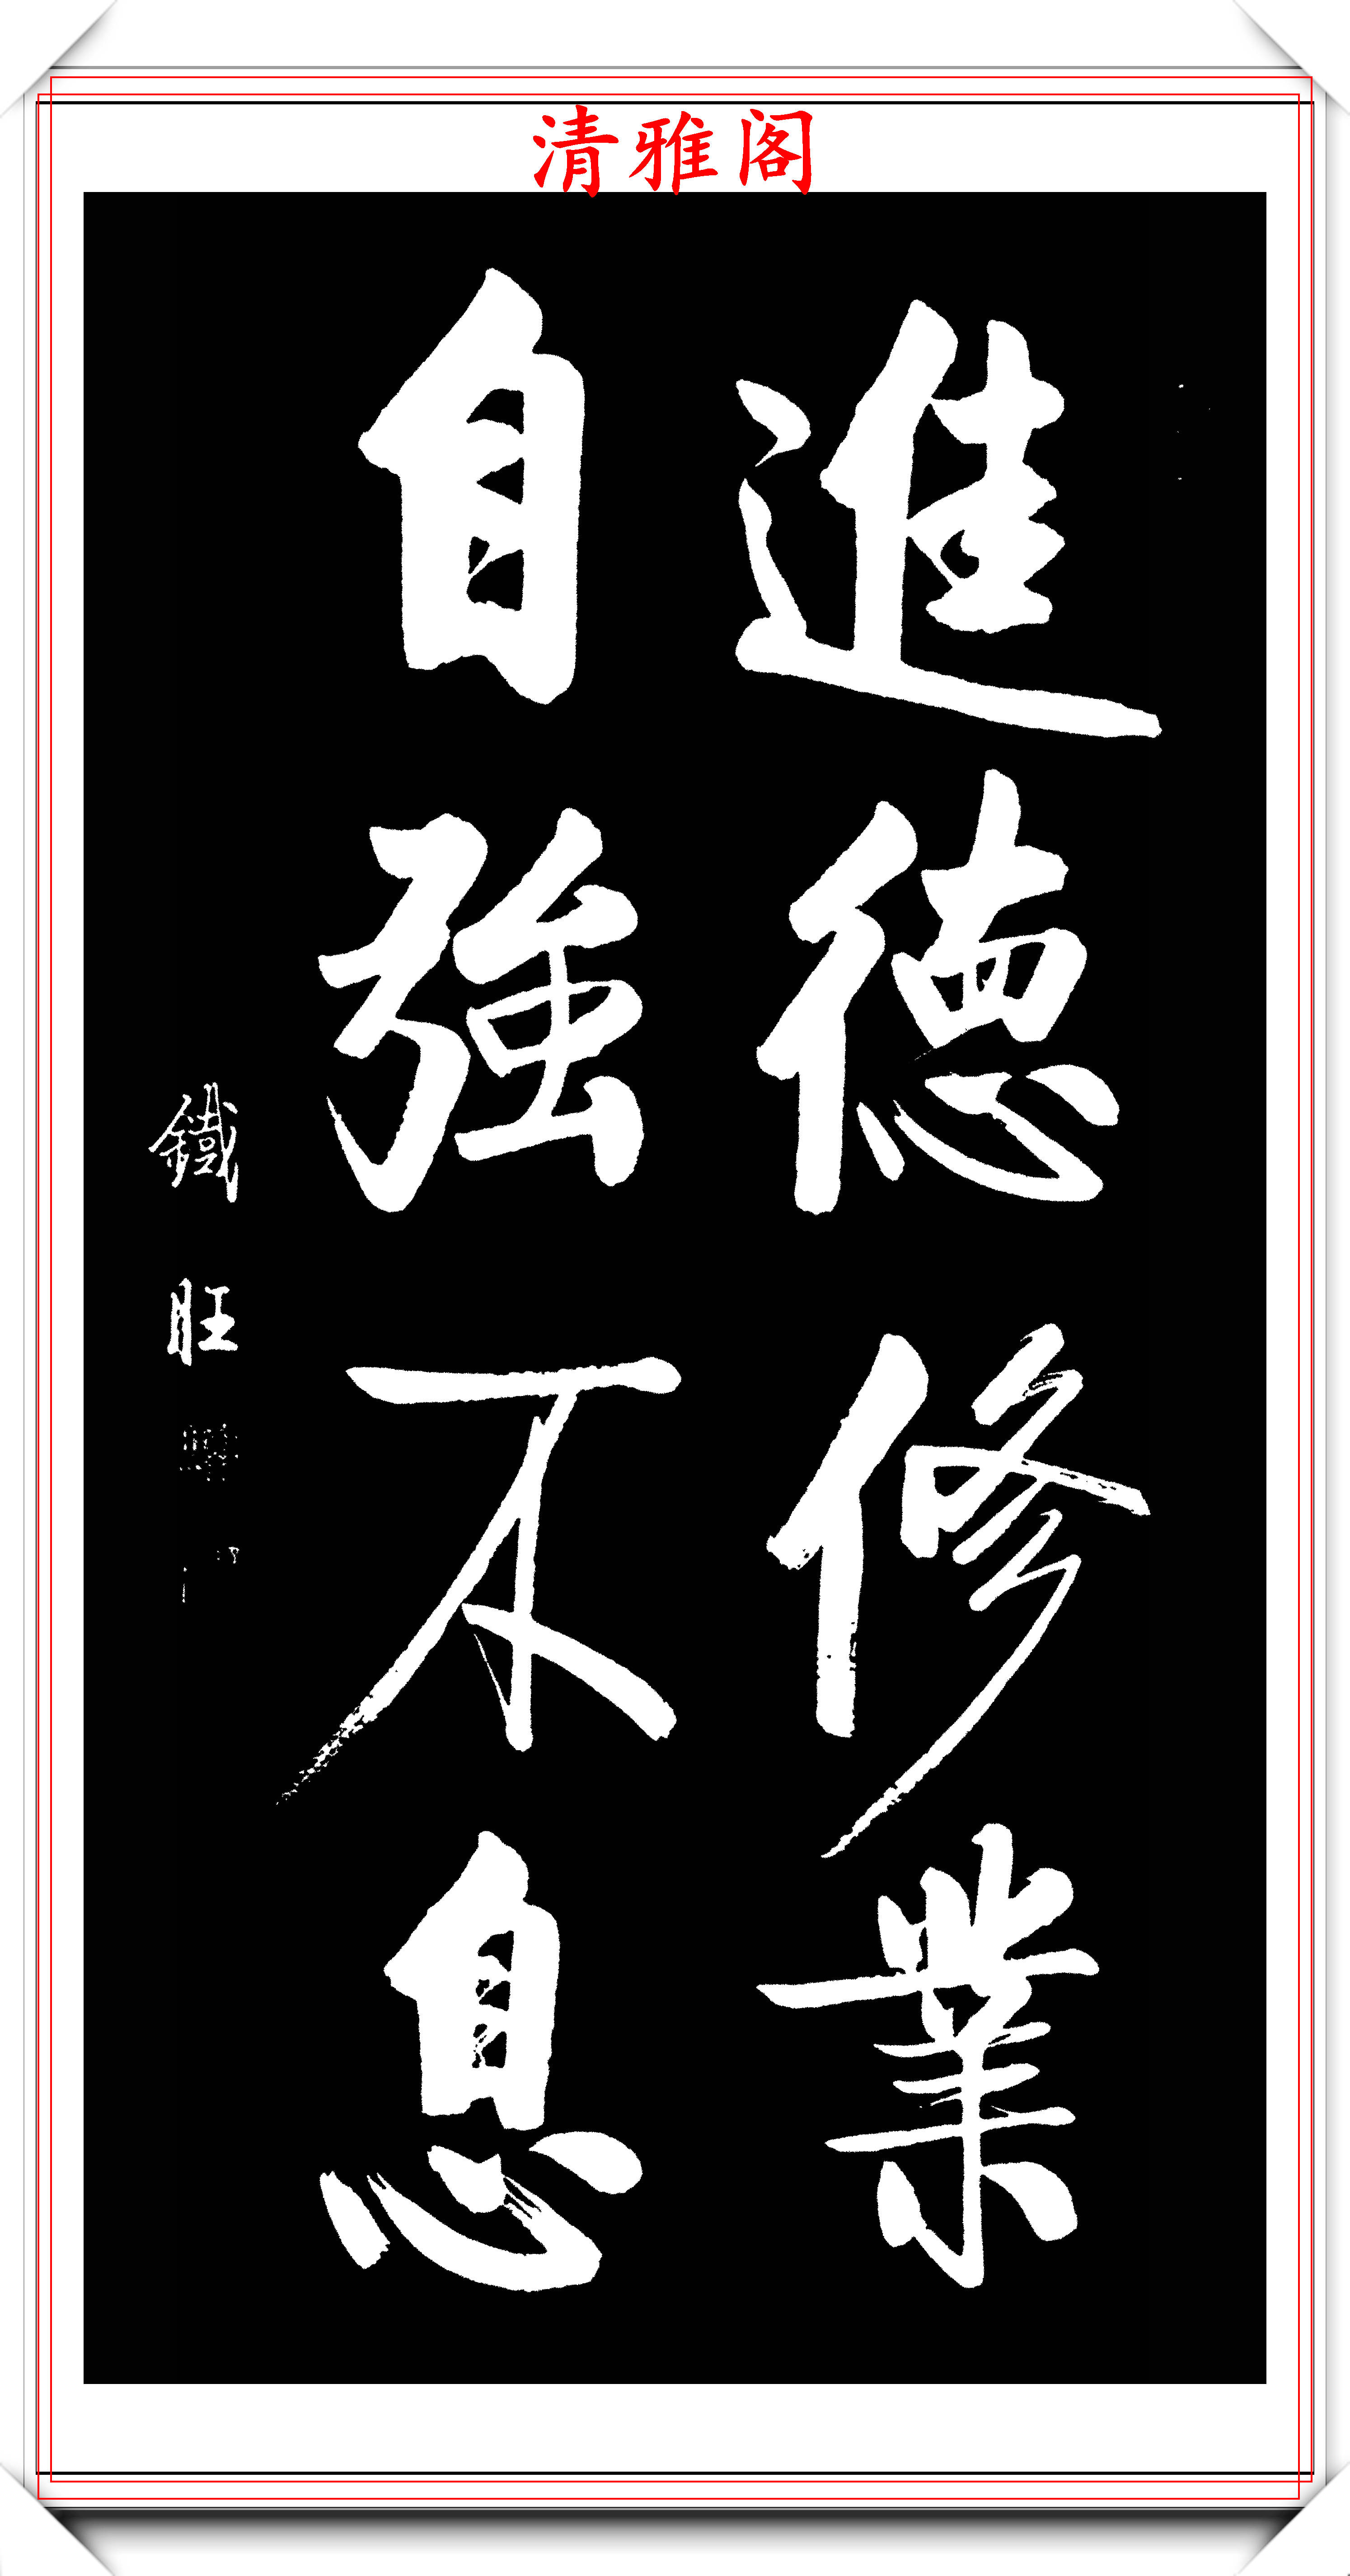 清雅阁
進德修業
自強不息
鐵旺